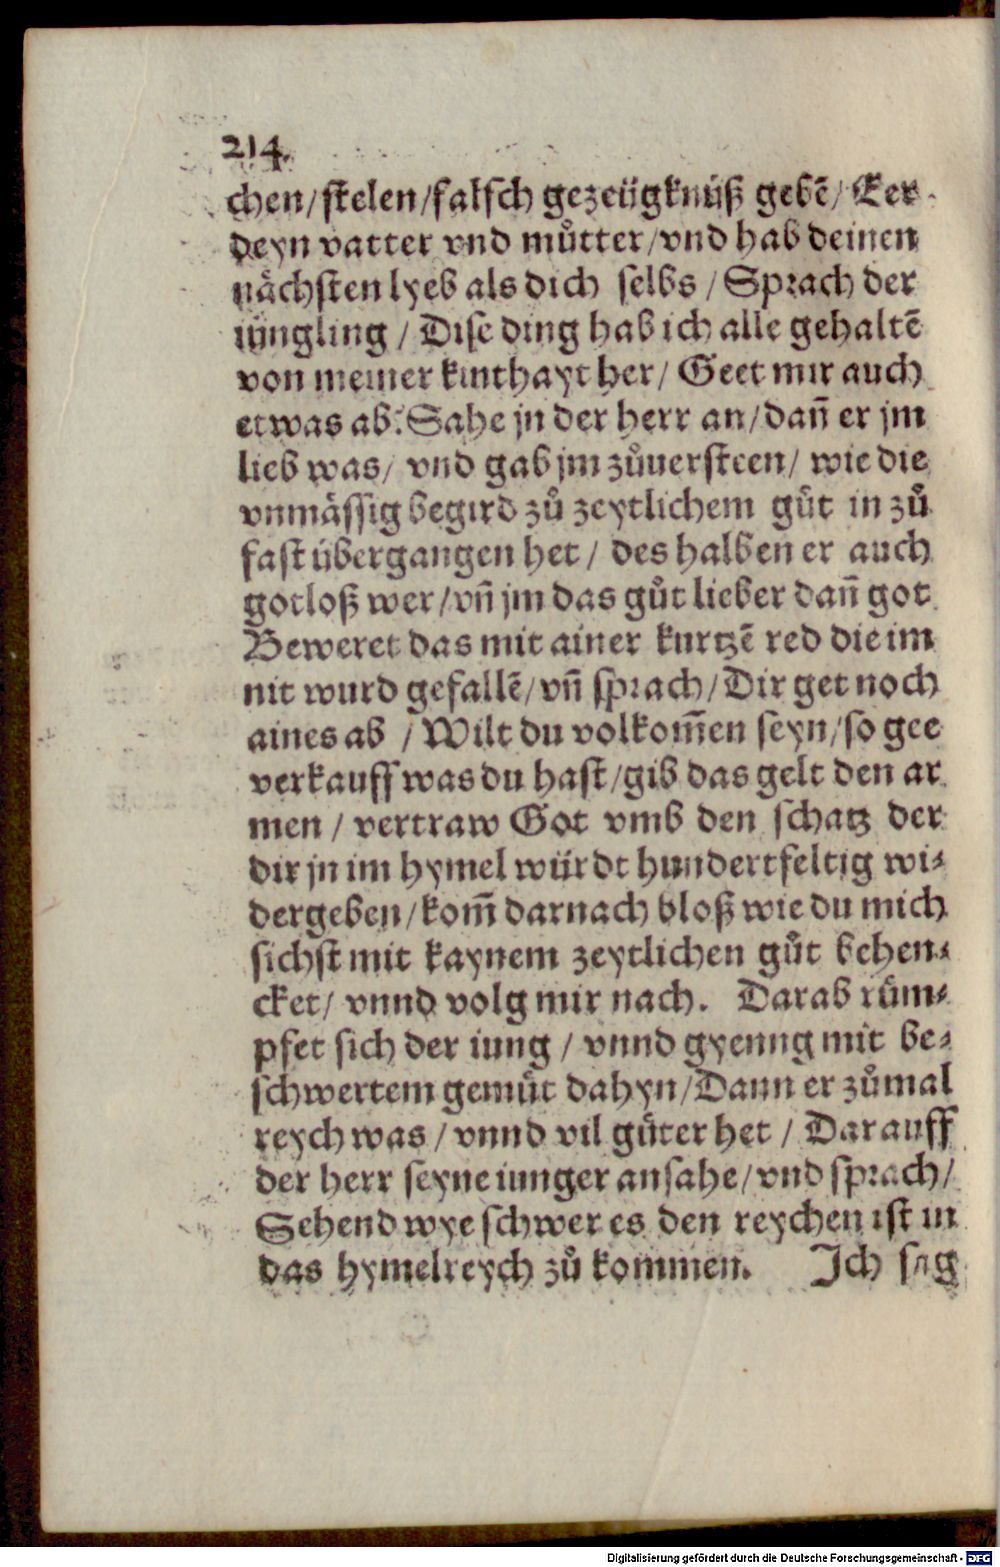 214.
chen/stelen/falsch gezeügknüß gebē/ Eer
deyn vatter vnd můtter/vnd hab deinen
nächsten lyeb als dich selbs / Sprach der
iüngling / Dise ding hab ich alle gehaltē
von meiner kinthayt her/ Geet mir auch
etwas ab: Sahe jn der herr an/dañ er jm
lieb was/ vnd gab jm zůuersteen/ wie die
vnmässig begird zů zeytlichem gůt in zů
fast übergangen het / des halben er auch
gotloß wer/vñ jm das gůt lieber dañ got
Beweret das mit ainer kurtzē red die im
nit wurd gefallē/vñ sprach/Dir get noch
aines ab / Wilt du volkom̃en seyn/so gee
verkauff was du hast/gib das gelt den ar
men / vertraw Got vmb den schatz der
dir jn im hymel würdt hundertfeltig wi-
dergeben/kom̃ darnach bloß wie du mich
sichst mit kaynem zeytlichen gůt behen-
cket/ vnnd volg mir nach. Darab rüm-
pfet sich der iung / vnnd gyenng mit be-
schwertem gemüt dahyn/Dann er zůmal
reych was / vnnd vil güter het / Darauff
der herr seyne iunger ansahe/vnd sprach/
Sehend wye schwer es den reychen ist in
das hymelreych zů kommen. Ich sag
Digitalisierung gefördert durch die Deutsche Forschungsgemeinschaft - DFG